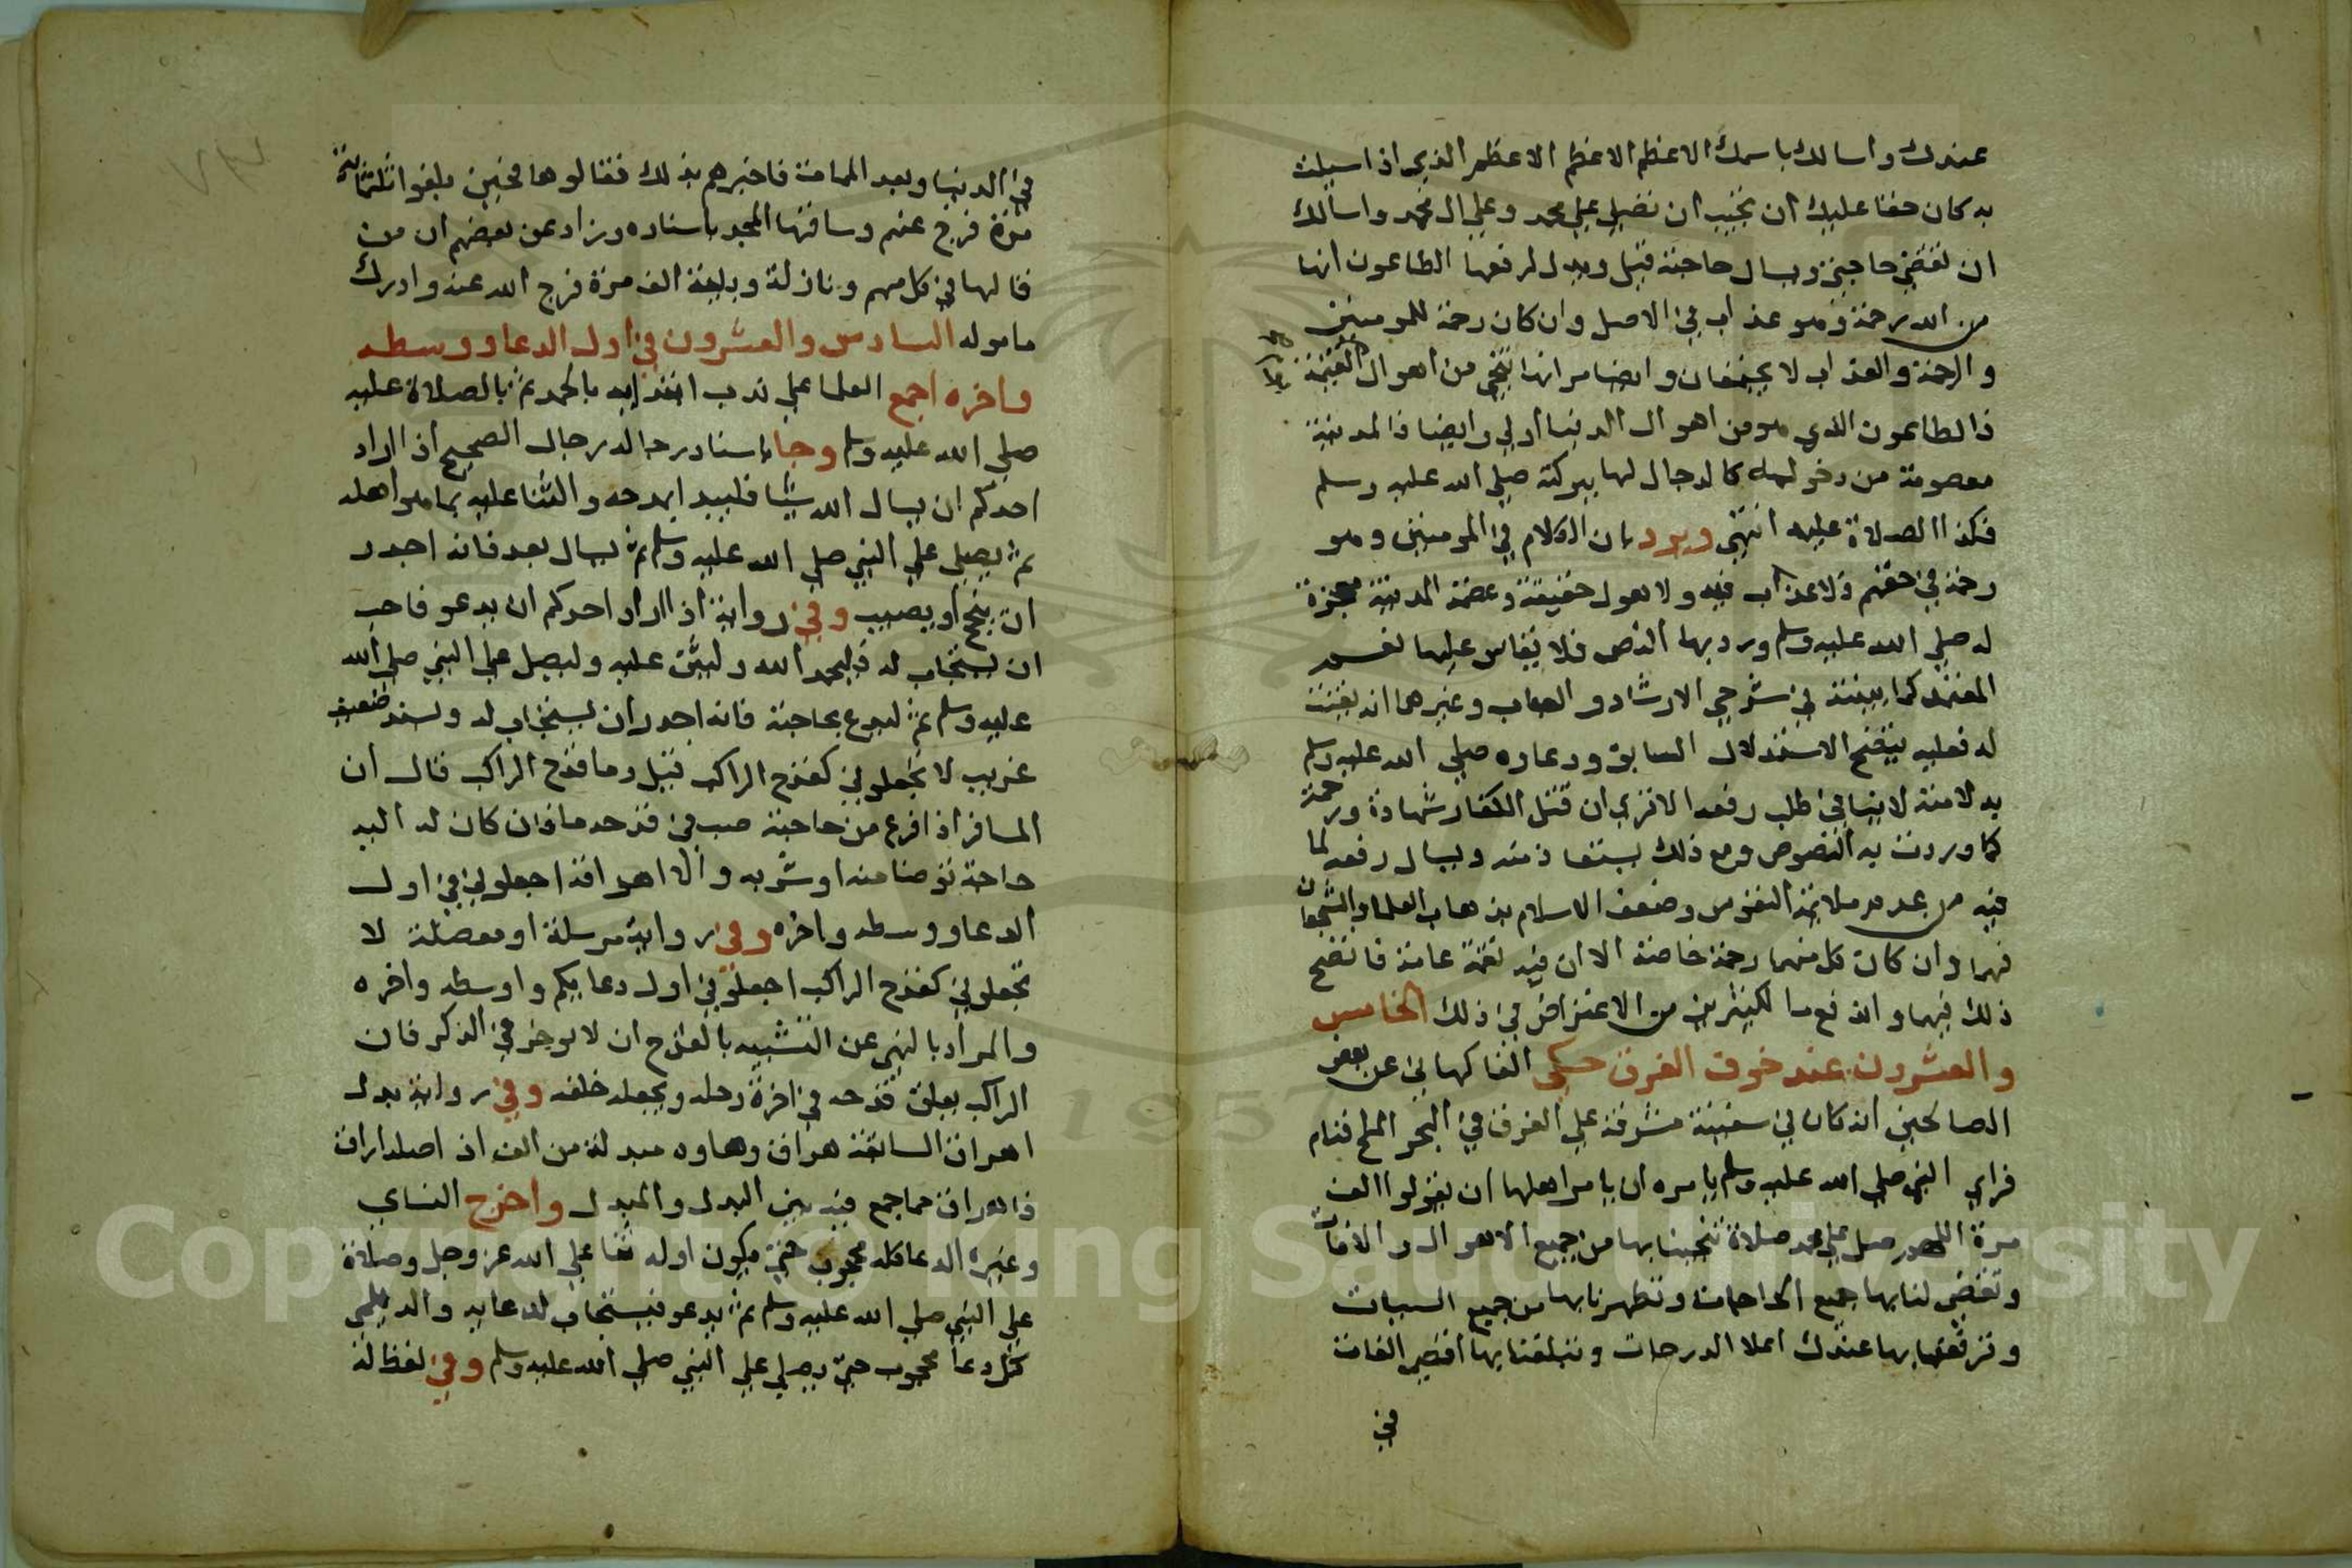 عندك واسالك باسمك الاعظم الاعظم الاعظم الذي اذا سيلت
به كان حقا عليك ان تجيب ان تصلي علي محمد وعلي ال محمد واسالك
ان تقضي حاجتي ويسال حاجته قيل ويدل لرفعها الطاعون انها
من الله رحمة وهو عذاب في الاصل وان كان رحمة للمومنين
والرحمة والعذاب لا يجتمعان وايضا مر انها تنجي من اهوال القيمة
فالطاعون الذي هو من اهوال الدنيا اولي وايضا فالمدينة
معصومة من دخوله كالدجال لها ببركته صلي الله عليه وسلم
فكذا الصلاة عليه انتهي ويرد بان الكلام في المومنين وهو
رحمة في حقهم ولا عذاب فيه ولا هول حقيقة وعصمة المدينة معجزة
له صلي الله عليه وسلم ورد بها النص فلا يقاس عليها نعم
المعتمد كما بينته في شرحي الارشاد والعباب وغيرهما انه يقنت
له فعليه يتضح الاستدلال السابق ودعاوه صلي الله عليه وسلم
به لامته لا ينافي طلب رفعه الا تري ان قتل الكفار شهادة ورحمة
كما وردت به النصوص ومع ذلك يستعاذ منه ويسال رفعه لما
فيه من عدم ملايمة النفوس وضعف الاسلام بذهاب العلما والشجعان
فهما وان كان كل منهما رحمة خاصة الا ان فيه نقمة عامة فاتضح
ذلك فيهما واندفع ما لكثيرين من الاعتراض في ذلك الخامس
والعشرون عند خوف الغرق حكي الفاكهاني عن بعض
الصالحين انه كان في سفينة مشرفة علي الغرق في البحر الملح فنام
فراي النبي صلي الله عليه وسلم يامره ان يامر اهلها ان يقولوا الف
مرة اللهم صل علي محمد صلاة تنجينا بها من جميع الاهوال والافات
وتقضي لنا بها جميع الحاجات وتطهرنا بها من جميع السيات
وترفعنا بها عندك اعلا الدرجات وتبلغنا بها اقصي الغايات
في
في الدنيا وبعد الممات فاخبرهم بذلك فقالوها فحين بلغوا ثلثماية
مرة فرج عنهم وساقها المجد باسناده وزاد عن بعضهم ان من
قالها في كل مهم ونازلة وبلية الف مرة فرج الله عنه وادرك
ماموله السادس والعشرون في اول الدعا ووسطه
واخره اجمع العلما علي ندب ابتدايه بالحمد ثم بالصلاة عليه
صلي الله عليه وسلم وجا باسناد رجاله رجال الصحيح اذا اراد
احدكم ان يسال الله شيا فليبدا بمدحه والثنا عليه بما هو اهله
ثم يصلي علي النبي صلي الله عليه وسلم ثم ليسال بعد فانه اجدر
ان ينجح او يصيب وفي رواية اذا اراد احدكم ان يدعو فاحب
ان يستجاب له فليحمد الله وليثن عليه وليصل علي النبي صلي الله
عليه وسلم ثم ليدع بحاجته فانه اجدر ان يستجاب له ولسند ضعيف
غريب لا تجعلوني كقدح الراكب قيل وما قدح الراكب قال ان
المسافر اذا فرغ من حاجته صب في قدحه ما فان كان له اليه
حاجة توضا منه او شربه والا اهراقه اجعلوني في اول
الدعا ووسطه واخره وفي رواية مرسلة او معضلة لا
تجعلوني كقدح الراكب اجعلوني اول دعايكم واوسطه واخره
والمراد بالنهي عن التشبيه بالقدح ان لا يوخر في الذكر فان
الراكب يعلق قدحه في اخرة رحله ويجعله خلفه وفي رواية بدل
اهراق السابقة هراق وهاوه مبدلة من الف اذ اصله اراق
فاهراق مما جمع فيه بين البدل والمبدل واخرج النساي
وغيره الدعا كله محجوب حتي يكون اوله ثنا علي الله عز وجل وصلاة
علي النبي صلي الله عليه وسلم ثم يدعو فيستجاب لدعايه والديلمي
كل دعا محجوب حتي يصلي علي النبي صلي الله عليه وسلم وفي لفظ له
Copyright © King Saud University
1957